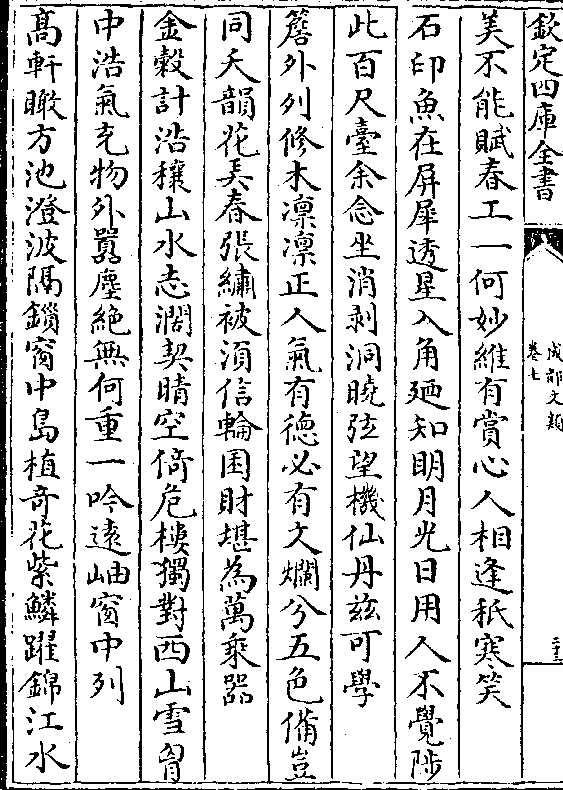 欽定四庫全書
成都文類
卷七
二十三
美不能賦春工一何妙維有賞心人相逢秖寒笑
石印魚在屏犀透星入角廼知明月光日用人不覺陟
此百尺臺余念坐消剥洞曉弦望機仙丹兹可學
簷外列修木凛凛正人氣有德必有文爛兮五色備豈
同夭韻花美春張繡被湏信輪囷財堪為萬乘器
金穀計浩穰山水志濶契晴空倚危樓獨對西山雪胷
中浩氣充物外囂塵絶無何重一吟遠岫窗中列
髙軒瞰方池澄波隔鎖窗中島植奇花紫鱗躍錦江水